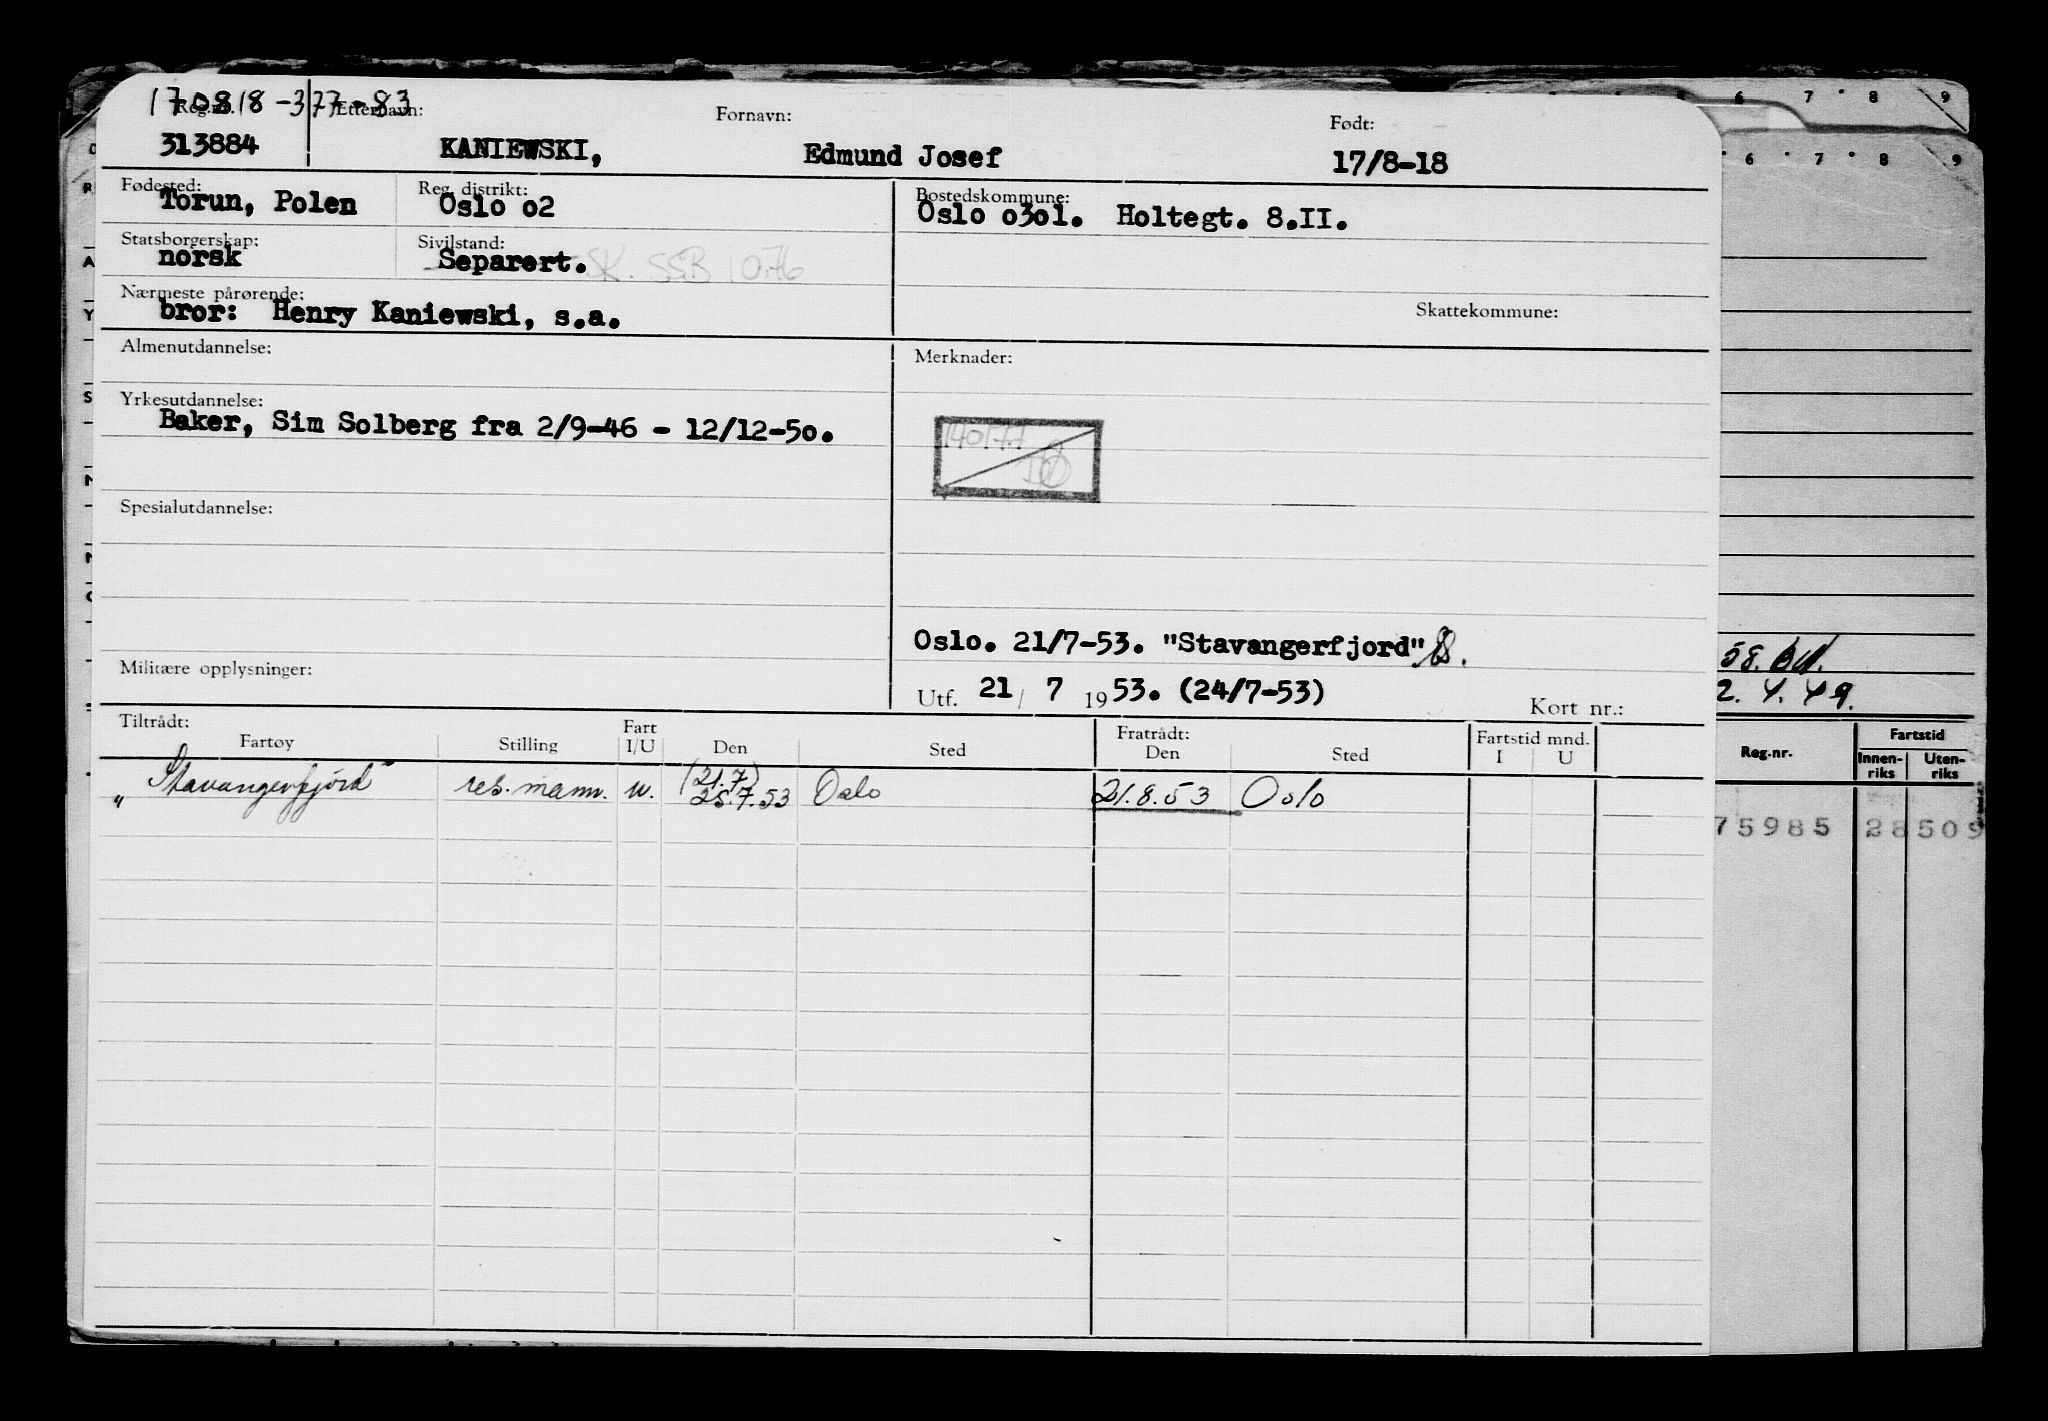 170818-377-83
Reg.nr. Etternavn: Fornavn: Født:
313884 KANIEWSKI, Edmund Josef 17/8-18
Fødested: Reg. distrikt: Bostedskommune:
Torun, Polen Oslo o2 Oslo o3o1. Holtegt. 8.II.
Statsborgerskap: Sivilstand:
norsk Separert. SK. SSB 10.76
Nærmeste pårørende: Skattekommune:
bror: Henry Kaniewski, s.a.
Almenutdannelse: Merknader:
Yrkesutdannelse:
Baker, Sim Solberg fra 2/9-46 - 12/12-5o.
140177
Spesialutdannelse:
Oslo. 21/7-53. "Stavangerfjord"
Militære opplysninger:
Utf. 21 / 7 1953. (24/7-53) Kort nr.:
Tiltrådt: Fratrådt:
Fartøy Stilling Fart I/U Den Sted Den Sted Fartstid mnd. I U
"Stavangerfjord" res. mann. u. (21.7) 25.7.53 Oslo 21.8.53 Oslo
6 7 8 9
6 7 8 9
58.
2.4.49.
Reg.nr. Fartstid
Innen-riks Uten-riks
75985 28509